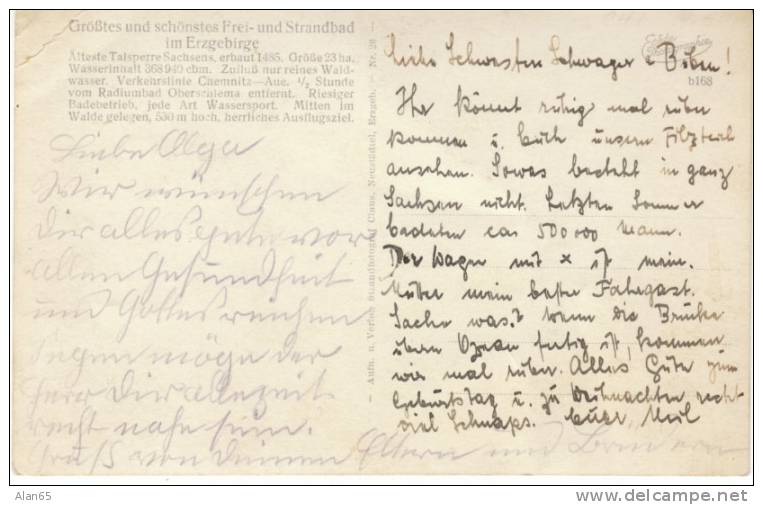 Größtes und schönstes Frei- und Strandbad
im Erzgebirge
Älteste Talsperre Sachsens, erbaut 1485. Größe 23 ha.
Wasserinhalt 368 940 cbm. Zufluß nur reines Wald-
wasser. Verkehrslinie Chemnitz—Aue. ½ Stunde
vom Radiumbad Oberschlema entfernt. Riesiger
Badebetrieb, jede Art Wassersport. Mitten im
Walde gelegen, 530 m hoch, herrliches Ausflugsziel.
Liebe Olga
Wir wünschen
Dir alles gute vor
allem Gesundheit
und Gottes reichen
Segen möge der
Herr Dir allezeit
recht nahe sein.
Gruß von Deinen Eltern und Brudern
— Aufn. u. Verlag Strandfotograf Claus, Neustädtel, Erzgeb. Nr. 20 —
Echte Photographie
b168
Liebe Schwester Schwager u Buben!
Ihr könnt ruhig mal rüber
kommen u. Euch unseren Filzteich
ansehen. Sowas besteht in ganz
Sachsen nicht. Letzten Sommer
badeten ca 500000 Mann.
Der Wagen mit x ist mein.
Mutter mein bester Fahrgast.
Sache was? Wenn die Brücke
übern Ozean fertig ist, kommen
wir mal rüber. Alles Gute zum
Geburtstag u. zu Weihnachten recht
viel Schnaps. Euer
Alan65
delcampe.net